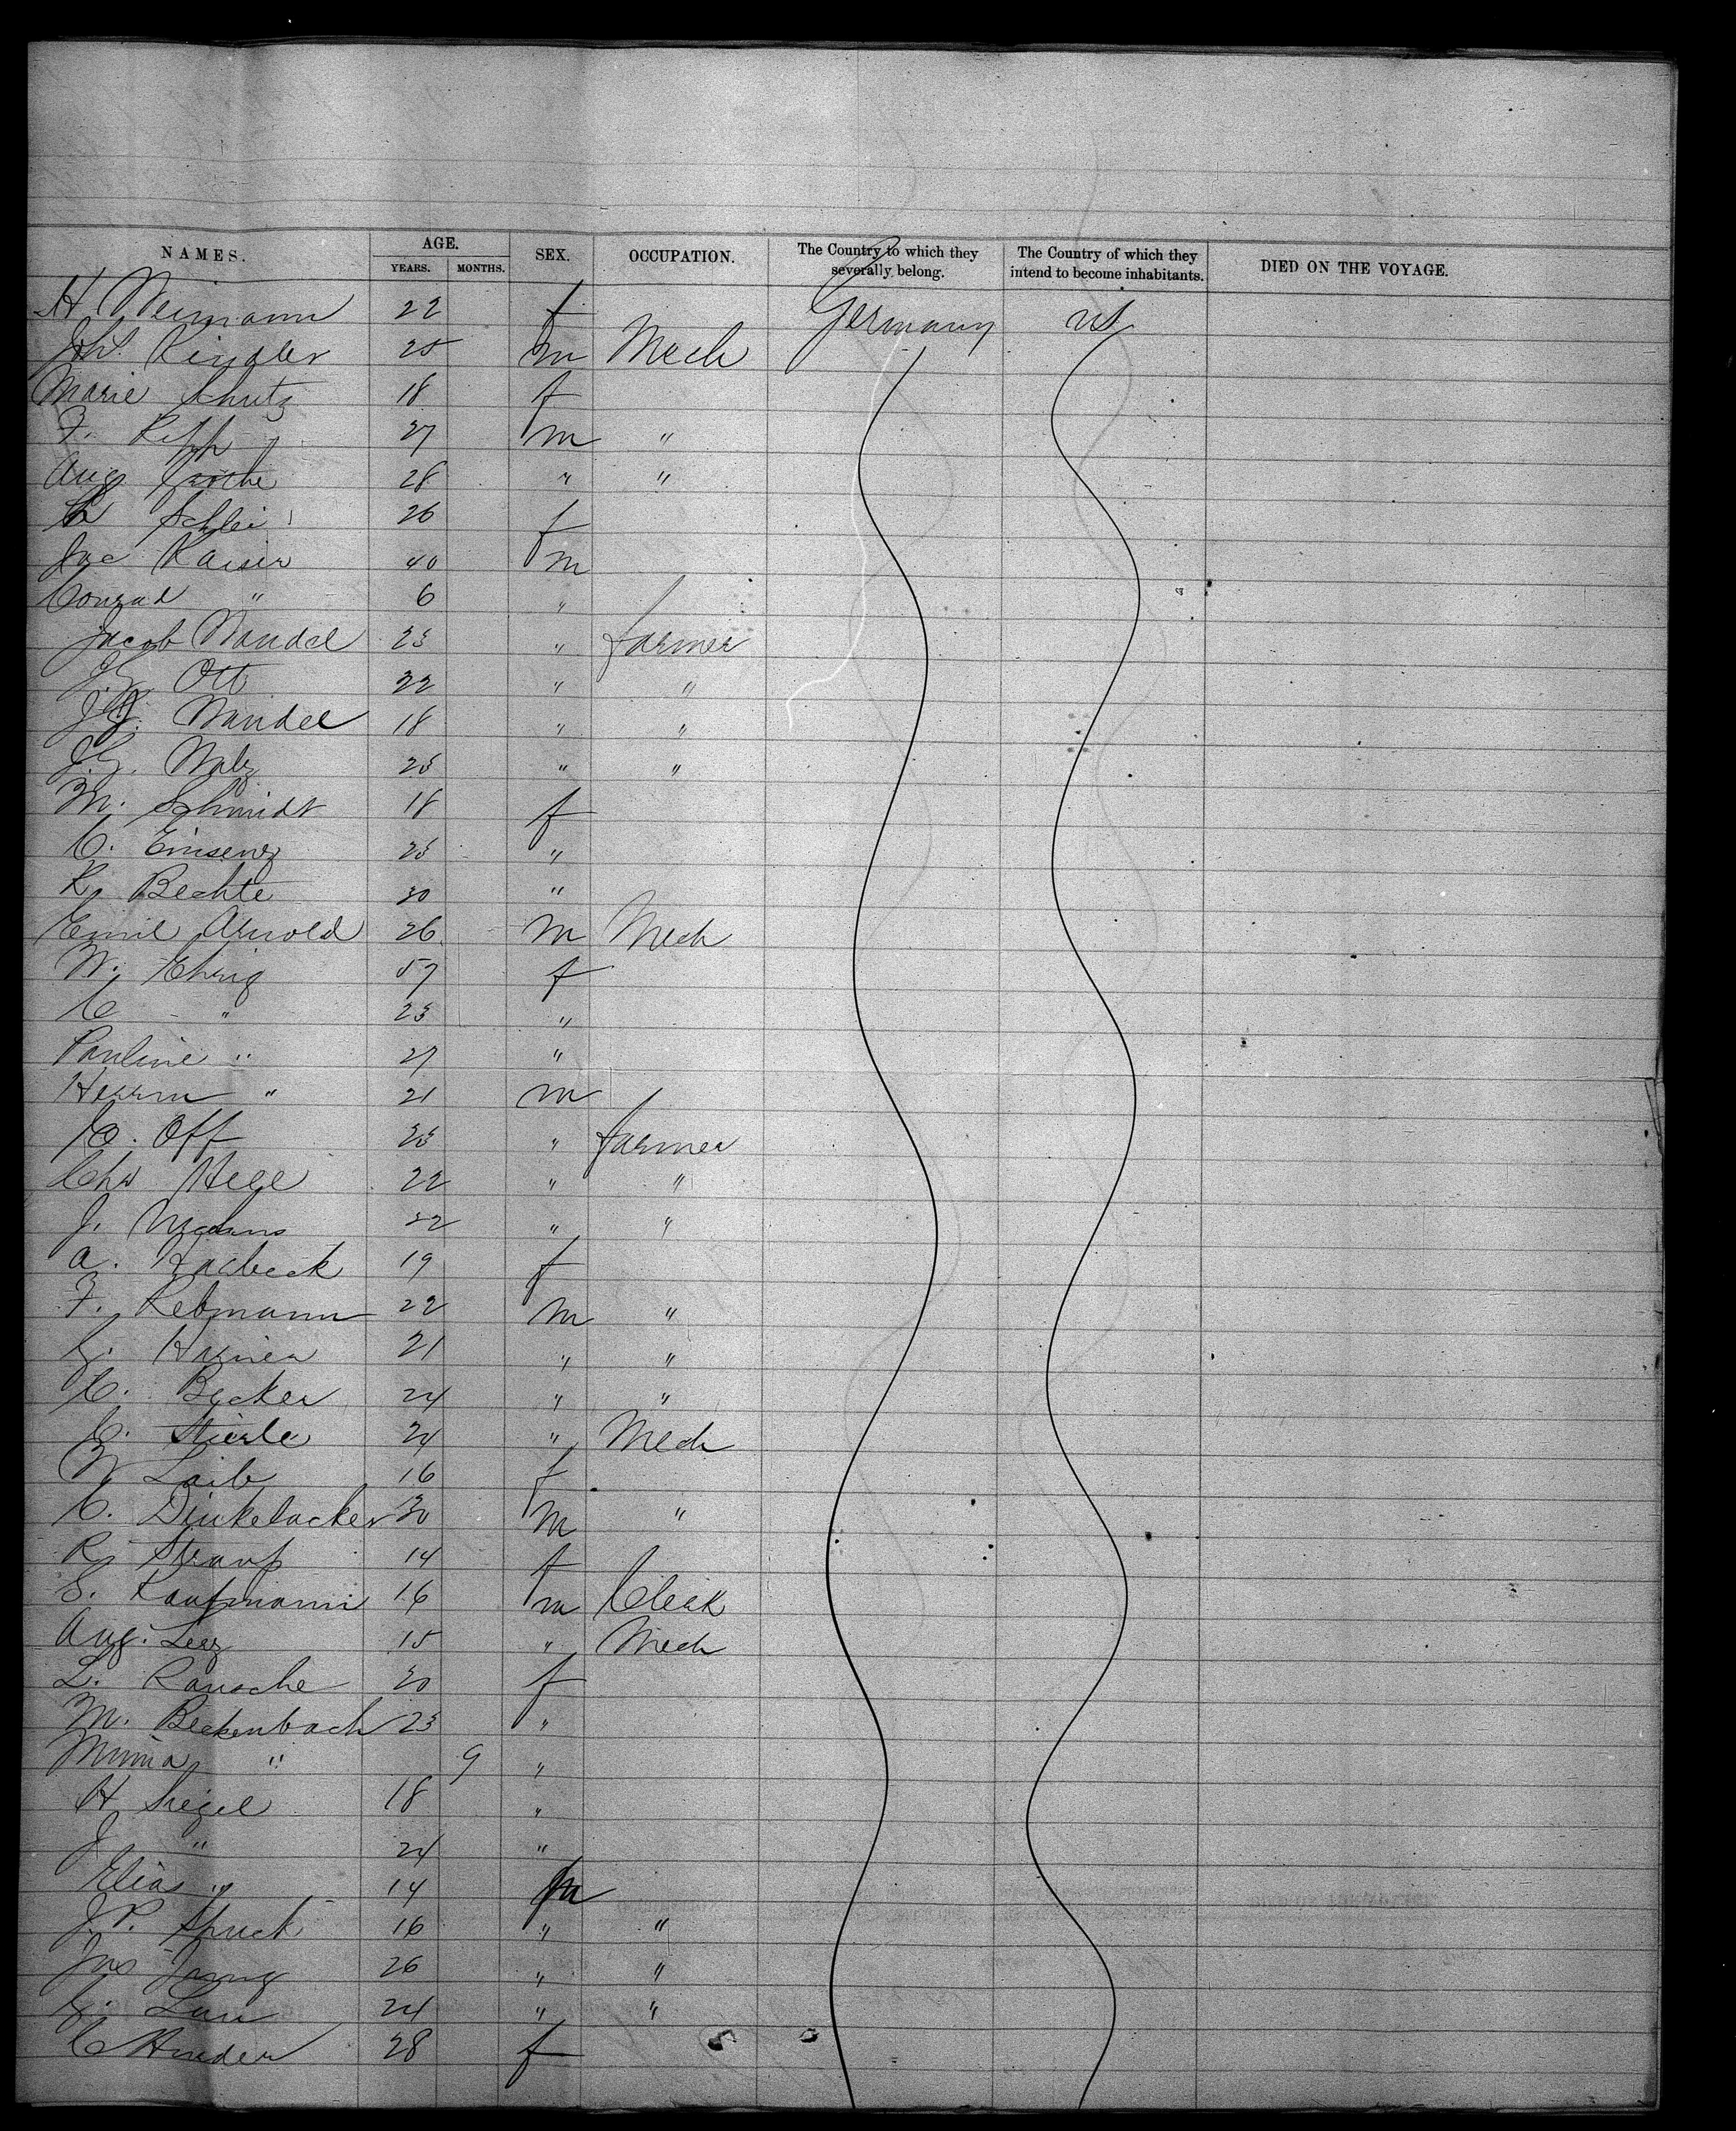 NAMES. AGE. SEX. OCCUPATION. The Country to which they severally belong. The Country of which they intend to become inhabitants. DIED ON THE VOYAGE.
YEARS. MONTHS.
H Neimann 22 f Germany US
Joh. Kindler 25 m Mech
Marie Schutz 18 f
F. 27 m "
Aug 28 " "
Schlei 26 f
Jac Kaiser 40 m
Conrad " 6 "
Jacob Wandel 23 " farmer
J.G. Ott 22 " "
J.G. Wandel 18 " "
J.G. Walz 23 " "
M. Schmidt 18 f
C. 23 "
K. Bechte 30 "
Emil Arnold 26 m Mech
W. Ehrig 57 f
C " 23 "
Pauline " 27 "
Herrm " 21 m
C. Off 23 " farmer
Chr Hege 22 " "
J. 32 " "
A. 19 f
F. Rebmann 22 m "
G. 21 " "
C. Becker 24 " "
C. Stierle 24 " Mech
W Laib 16 f
C. Dinkelacker 30 m "
R. 14 f
S. Kaufmann 16 m Clerk
Aug. 15 " Mech
L. Rausche 20 f
M. Beckenbach 23 "
Minna " 9 "
H Siegel 18 "
J " 24 "
Elias " 14 m
J.P. Spuck 16 " "
Jung 26 " "
G. Lau 24 " "
C 28 f